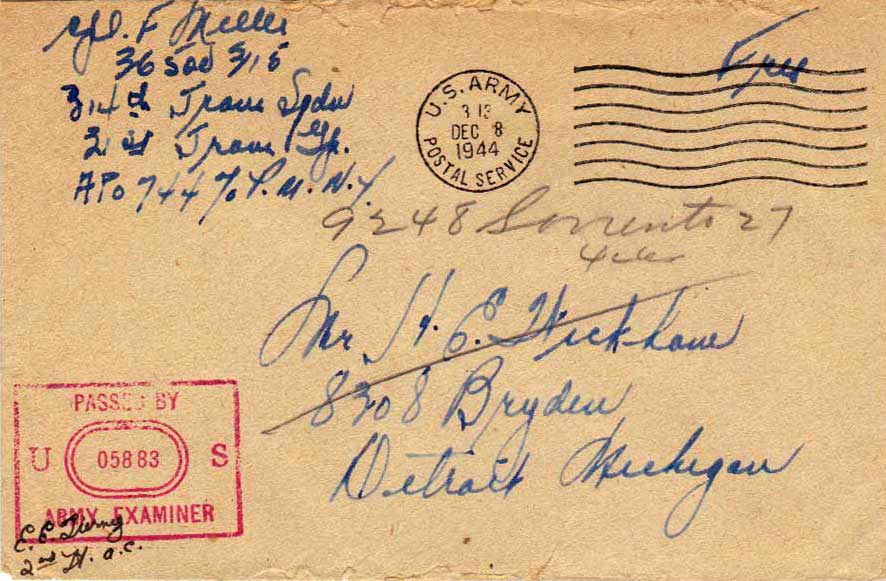 Cpl. F Miller
315
314th Trans Sqdn
21st Trans Gp.
APO 744 % P.M. N.Y.
Free
U.S. ARMY
3 13
DEC 8
1944
POSTAL SERVICE
9248 Sorrento 27
Mr. H. E. Wickham
8308 Bryden
Detroit Michigan
PASSED BY
U 05883 S
ARMY EXAMINER
E. E. Tierney
2nd Lt. A.C.